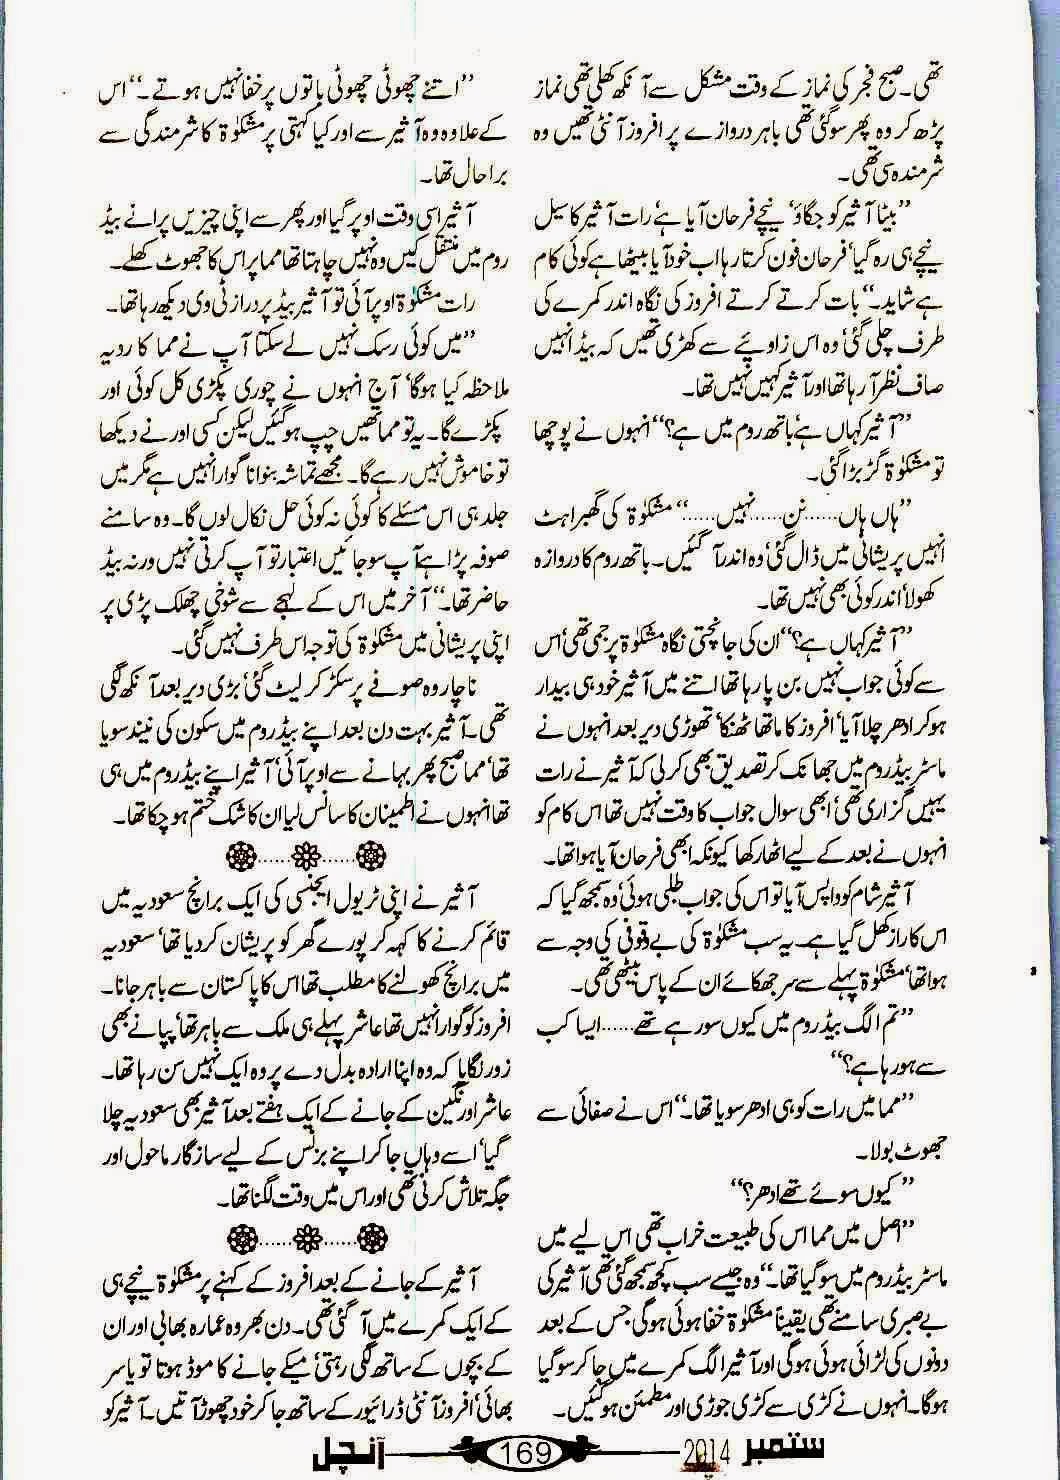 تھی۔ صبح فجر کی نماز کے وقت مشکل سے آنکھ کھلی تھی نماز
پڑھ کر وہ پھر سوگئی تھی باہر دروازے پر افروز آنٹی تھیں وہ
شرمندہ سی تھی۔
”بیٹا آشیر کو جگاؤ‘ نیچے فرحان آیا ہے‘ رات آشیر کا سیل
نیچے ہی رہ گیا‘ فرحان فون کرتا رہا اب خود آیا بیٹھا ہے کوئی کام
ہے شاید۔“ بات کرتے کرتے افروز کی نگاہ اندر کمرے کی
طرف چلی گئی‘ وہ اس زاویئے سے کھڑی تھیں کہ بیڈ انہیں
صاف نظر آرہا تھا اور آشیر کہیں نہیں تھا۔
”آشیر کہاں ہے‘ باتھ روم میں ہے؟“ انہوں نے پوچھا
تو مشکوٰۃ گڑبڑا گئی۔
”ہاں ہاں......نن......نہیں......“ مشکوٰۃ کی گھبراہٹ
انہیں پریشانی میں ڈال گئی‘ وہ اندر آگئیں۔ باتھ روم کا دروازہ
کھولا‘ اندر کوئی بھی نہیں تھا۔
”آشیر کہاں ہے؟“ ان کی جانچتی نگاہ مشکوٰۃ پر جمی تھی‘ اس
سے کوئی جواب نہیں بن پارہا تھا اتنے میں آشیر خود ہی بیدار
ہوکر ادھر چلا آیا‘ افروز کا ماتھا ٹھنکا‘ تھوڑی دیر بعد انہوں نے
ماسٹر بیڈروم میں جھانک کر تصدیق بھی کرلی کہ آشیر نے رات
یہیں گزاری تھی‘ ابھی سوال جواب کا وقت نہیں تھا اس کام کو
انہوں نے بعد کے لیے اٹھا رکھا کیونکہ ابھی فرحان آیا ہوا تھا۔
آشیر شام کو واپس آیا تو اس کی جواب طلبی ہوئی‘ وہ سمجھ گیا کہ
اس کا راز کھل گیا ہے۔ یہ سب مشکوٰۃ کی بے وقوفی کی وجہ سے
ہوا تھا‘ مشکوٰۃ پہلے سے سر جھکائے ان کے پاس بیٹھی تھی۔
”تم الگ بیڈروم میں کیوں سورہے تھے......ایسا کب
سے ہورہا ہے؟“
”مما میں رات کو ہی ادھر سویا تھا۔“ اس نے صفائی سے
جھوٹ بولا۔
”کیوں سوئے تھے ادھر؟“
”اصل میں مما اس کی طبیعت خراب تھی اس لیے میں
ماسٹر بیڈروم میں سوگیا تھا۔“ وہ جیسے سب کچھ سمجھ گئی تھی آشیر کی
بے صبری سامنے تھی یقیناً مشکوٰۃ خفا ہوئی ہوگی جس کے بعد
دونوں کی لڑائی ہوئی ہوگی اور آشیر الگ کمرے میں جاکر سوگیا
ہوگا۔ انہوں نے کڑی سے کڑی جوڑی اور مطمئن ہوگئیں۔
”اتنے چھوٹی چھوٹی باتوں پر خفا نہیں ہوتے۔“ اس
کے علاوہ وہ آشیر سے اور کیا کہتی پر مشکوٰۃ کا شرمندگی سے
برا حال تھا۔
آشیر اسی وقت اوپر گیا اور پھر سے اپنی چیزیں پرانے بیڈ
روم میں منتقل کیں وہ نہیں چاہتا تھا مما پر اس کا جھوٹ کھلے۔
رات مشکوٰۃ اوپر آئی تو آشیر بیڈ پر دراز ٹی وی دیکھ رہا تھا۔
”میں کوئی رسک نہیں لے سکتا آپ نے مما کا رویہ
ملاحظہ کیا ہوگا‘ آج انہوں نے چوری پکڑی کل کوئی اور
پکڑے گا۔ یہ تو مما تھیں چپ ہوگئیں لیکن کسی اور نے دیکھا
تو خاموش نہیں رہے گا۔ مجھے تماشہ بنوانا گوارا نہیں ہے مگر میں
جلد ہی اس مسئلے کا کوئی نہ کوئی حل نکال لوں گا۔ وہ سامنے
صوفہ پڑا ہے آپ سوجائیں اعتبار تو آپ کرتی نہیں ورنہ بیڈ
حاضر تھا۔“ آخر میں اس کے لہجے سے شوخی چھلک پڑی پر
اپنی پریشانی میں مشکوٰۃ کی توجہ اس طرف نہیں گئی۔
ناچار وہ صوفے پر سکڑ کر لیٹ گئی‘ بڑی دیر بعد آنکھ لگی
تھی۔ آشیر بہت دن بعد اپنے بیڈروم میں سکون کی نیند سویا
تھا‘ مما صبح پھر بہانے سے اوپر آئی‘ آشیر اپنے بیڈروم میں ہی
تھا انہوں نے اطمینان کا سانس لیا ان کا شک ختم ہوچکا تھا۔
آشیر نے اپنی ٹریول ایجنسی کی ایک برانچ سعودیہ میں
قائم کرنے کا کہہ کر پورے گھر کو پریشان کردیا تھا‘ سعودیہ
میں برانچ کھولنے کا مطلب تھا اس کا پاکستان سے باہر جانا۔
افروز کو گوارا نہیں تھا عاشر پہلے ہی ملک سے باہر تھا‘ پپا نے بھی
زور لگایا کہ وہ اپنا ارادہ بدل دے پر وہ ایک نہیں سن رہا تھا۔
عاشر اور نگین کے جانے کے ایک ہفتے بعد آشیر بھی سعودیہ چلا
گیا‘ اسے وہاں جاکر اپنے بزنس کے لیے سازگار ماحول اور
جگہ تلاش کرنی تھی اور اس میں وقت لگنا تھا۔
آشیر کے جانے کے بعد افروز کے کہنے پر مشکوٰۃ نیچے ہی
کے ایک کمرے میں آگئی تھی۔ دن بھر وہ عمارہ بھابی اور ان
کے بچوں کے ساتھ لگی رہتی‘ میکے جانے کا موڈ ہوتا تو یاسر
بھائی‘ افروز آنٹی ڈرائیور کے ساتھ جاکر خود چھوڑ آتیں۔ آشیر کو
ستمبر 2014 169 آنچل